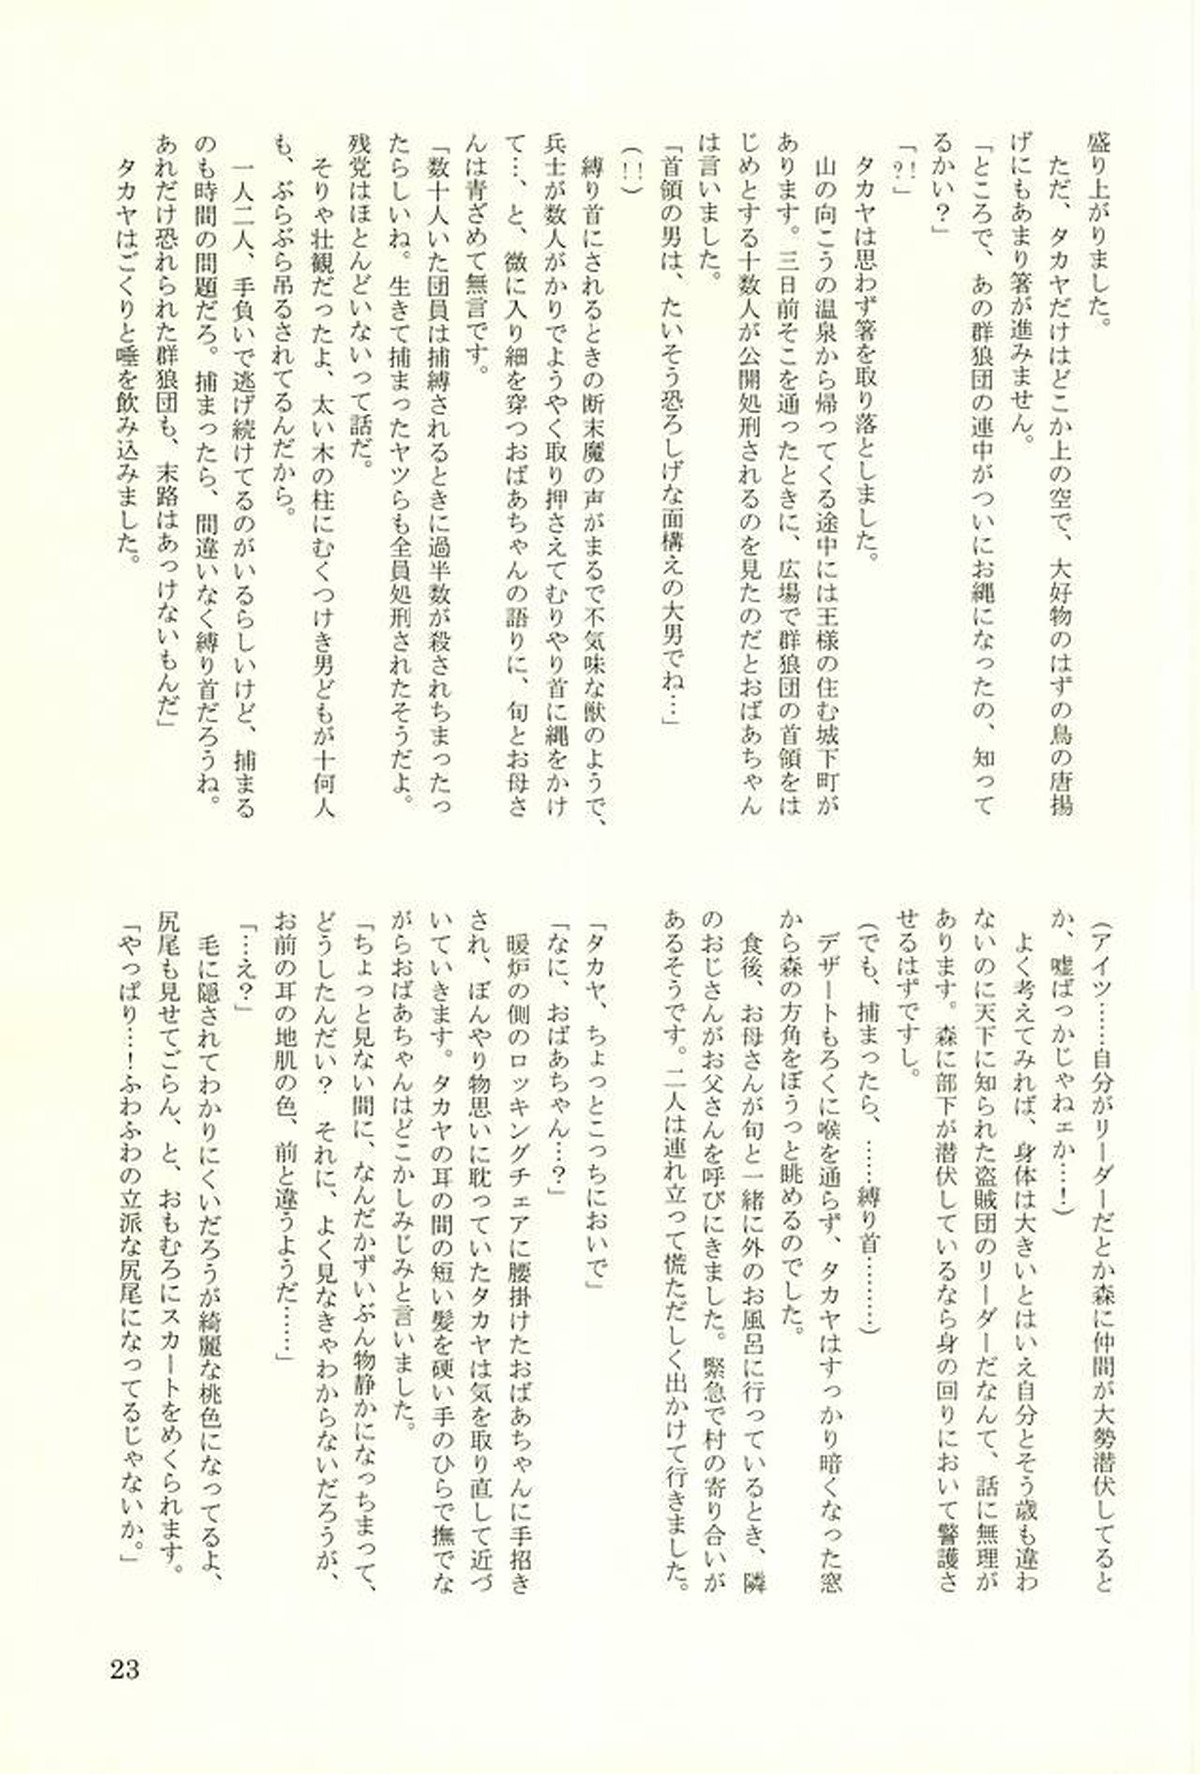 盛り上がりました。
　ただ、タカヤだけはどこか上の空で、大好物のはずの鳥の唐揚
げにもあまり箸が進みません。
「ところで、あの群狼団の連中がついにお縄になったの、知って
るかい？」
「！？」
　タカヤは思わず箸を取り落としました。
　山の向こうの温泉から帰ってくる途中には王様の住む城下町が
あります。三日前そこを通ったときに、広場で群狼団の首領をは
じめとする十数人が公開処刑されるのを見たのだとおばあちゃん
は言いました。
「首領の男は、たいそう恐ろしげな面構えの大男でね…」
（！！）
　縛り首にされるときの断末魔の声がまるで不気味な獣のようで、
兵士が数人がかりでようやく取り押さえてむりやり首に縄をかけ
て…、と、微に入り細を穿つおばあちゃんの語りに、旬とお母さ
んは青ざめて無言です。
「数十人いた団員は捕縛されるときに過半数が殺されちまったっ
たらしいね。生きて捕まったヤツらも全員処刑されたそうだよ。
残党はほとんどいないって話だ。
　そりゃ壮観だったよ、太い木の柱にむくつけき男どもが十何人
も、ぶらぶら吊るされてるんだから。
　一人二人、手負いで逃げ続けてるのがいるらしいけど、捕まる
のも時間の問題だろ。捕まったら、間違いなく縛り首だろうね。
あれだけ恐れられた群狼団も、末路はあっけないもんだ」
　タカヤはごくりと唾を飲み込みました。
（アイツ……自分がリーダーだとか森に仲間が大勢潜伏してると
か、嘘ばっかじゃねェか…！）
　よく考えてみれば、身体は大きいとはいえ自分とそう歳も違わ
ないのに天下に知られた盗賊団のリーダーだなんて、話に無理が
あります。森に部下が潜伏しているなら身の回りにおいて警護さ
せるはずですし。
（でも、捕まったら、……縛り首………）
　デザートもろくに喉を通らず、タカヤはすっかり暗くなった窓
から森の方角をぼうっと眺めるのでした。
　食後、お母さんが旬と一緒に外のお風呂に行っているとき、隣
のおじさんがお父さんを呼びにきました。緊急で村の寄り合いが
あるそうです。二人は連れ立って慌ただしく出かけて行きました。
「タカヤ、ちょっとこっちにおいで」
「なに、おばあちゃん…？」
　暖炉の側のロッキングチェアに腰掛けたおばあちゃんに手招き
され、ぼんやり物思いに耽っていたタカヤは気を取り直して近づ
いていきます。タカヤの耳の間の短い髪を硬い手のひらで撫でな
がらおばあちゃんはどこかしみじみと言いました。
「ちょっと見ない間に、なんだかずいぶん物静かになっちまって、
どうしたんだい？　それに、よく見なきゃわからないだろうが、
お前の耳の地肌の色、前と違うようだ……」
「…え？」
　毛に隠されてわかりにくいだろうが綺麗な桃色になってるよ、
尻尾も見せてごらん、と、おもむろにスカートをめくられます。
「やっぱり…！ふわふわの立派な尻尾になってるじゃないか。」
23